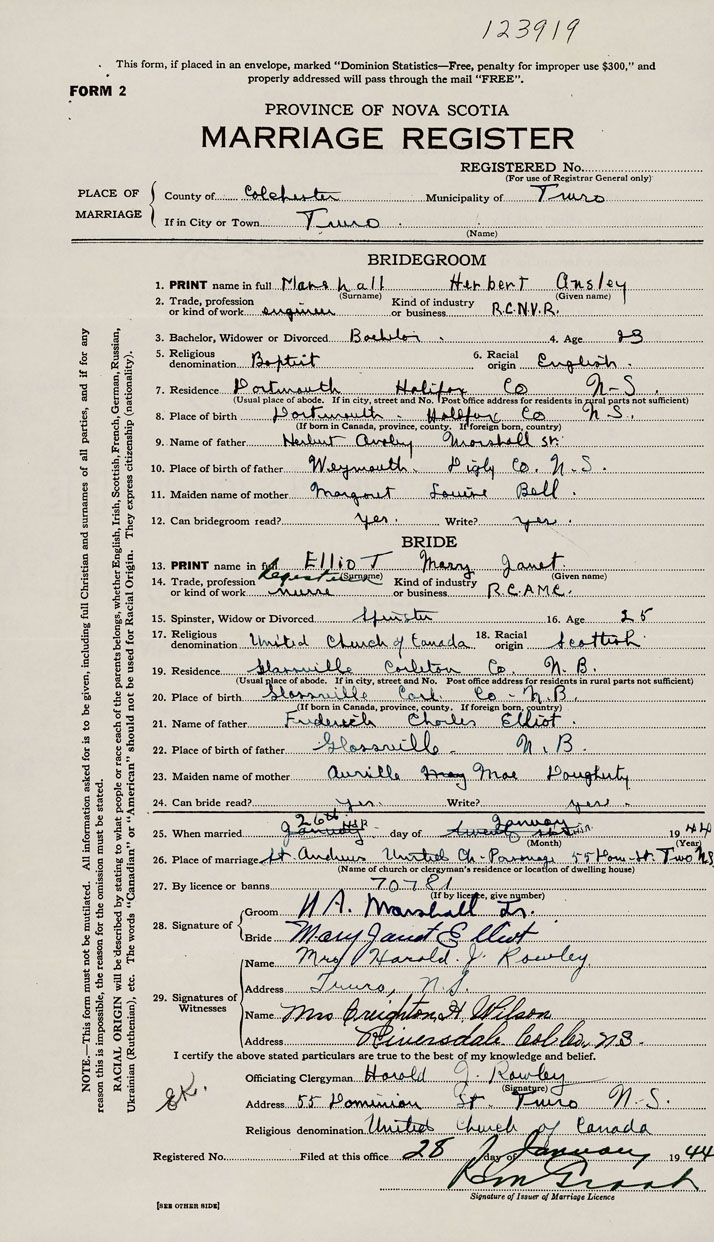 123919
This form, if placed in an envelope, marked "Dominion Statistics—Free, penalty for improper use $300," and
properly addressed will pass through the mail "FREE".
FORM 2
PROVINCE OF NOVA SCOTIA
MARRIAGE REGISTER
REGISTERED No.
(For use of Registrar General only)
PLACE OF MARRIAGE
County of Colchester Municipality of Truro
If in City or Town Truro
(Name)
BRIDEGROOM
1. PRINT name in full Marshall Herbert Ansley
(Surname) (Given name)
2. Trade, profession or kind of work engineer Kind of industry or business R.C.N.V.R.
3. Bachelor, Widower or Divorced Bachelor. 4. Age 23
5. Religious denomination Baptist 6. Racial origin English.
7. Residence Dartmouth Halifax Co N-S.
(Usual place of abode. If in city, street and No. Post office address for residents in rural parts not sufficient)
8. Place of birth Dartmouth Halifax Co N.S.
(If born in Canada, province, county. If foreign born, country)
9. Name of father Herbert Ansley Marshall Sr.
10. Place of birth of father Weymouth. Digby Co. N.S.
11. Maiden name of mother Margaret Louise Bell.
12. Can bridegroom read? yes. Write? yes.
BRIDE
13. PRINT name in full Elliot Mary Janet.
(Surname) (Given name)
14. Trade, profession or kind of work Registered nurse Kind of industry or business R.C.A.M.C.
15. Spinster, Widow or Divorced Spinster 16. Age 25
17. Religious denomination United Church of Canada 18. Racial origin Scottish.
19. Residence Glassville Carleton Co. N.B.
(Usual place of abode. If in city, street and No. Post office address for residents in rural parts not sufficient)
20. Place of birth Glassville Carl. Co - N.B.
(If born in Canada, province, county. If foreign born, country)
21. Name of father Frederick Charles Elliot.
22. Place of birth of father Glassville - N.B.
23. Maiden name of mother Aurilla May Mae Dougherty
24. Can bride read? yes. Write? yes.
25. When married 26th January day of January 1944
(Month) (Year)
26. Place of marriage St. Andrews United Ch-Parsonage 55 Dom-St. Truro N.S.
(Name of church or clergyman's residence or location of dwelling house)
27. By licence or banns 70781
(If by licence, give number)
28. Signature of
Groom H A. Marshall Jr.
Bride Mary Janet Elliot
29. Signatures of Witnesses
Name Mrs Harold. J. Rowley.
Address Truro, N.S.
Name Mrs Creighton H. Wilson
Address Riversdale Col. Co. N.S.
I certify the above stated particulars are true to the best of my knowledge and belief.
Officiating Clergyman Harold J. Rowley
(Signature)
Address 55 Dominion St. Truro N.S.
Religious denomination United Church of Canada
Registered No. Filed at this office 28 day of January 1944
Signature of Issuer of Marriage Licence
[SEE OTHER SIDE]
NOTE.—This form must not be mutilated. All information asked for is to be given, including full Christian and surnames of all parties, and if for any
reason this is impossible, the reason for the omission must be stated.
RACIAL ORIGIN will be described by stating to what people or race each of the parents belongs, whether English, Irish, Scottish, French, German, Russian,
Ukrainian (Ruthenian), etc. The words "Canadian" or "American" should not be used for Racial Origin. They express citizenship (nationality).